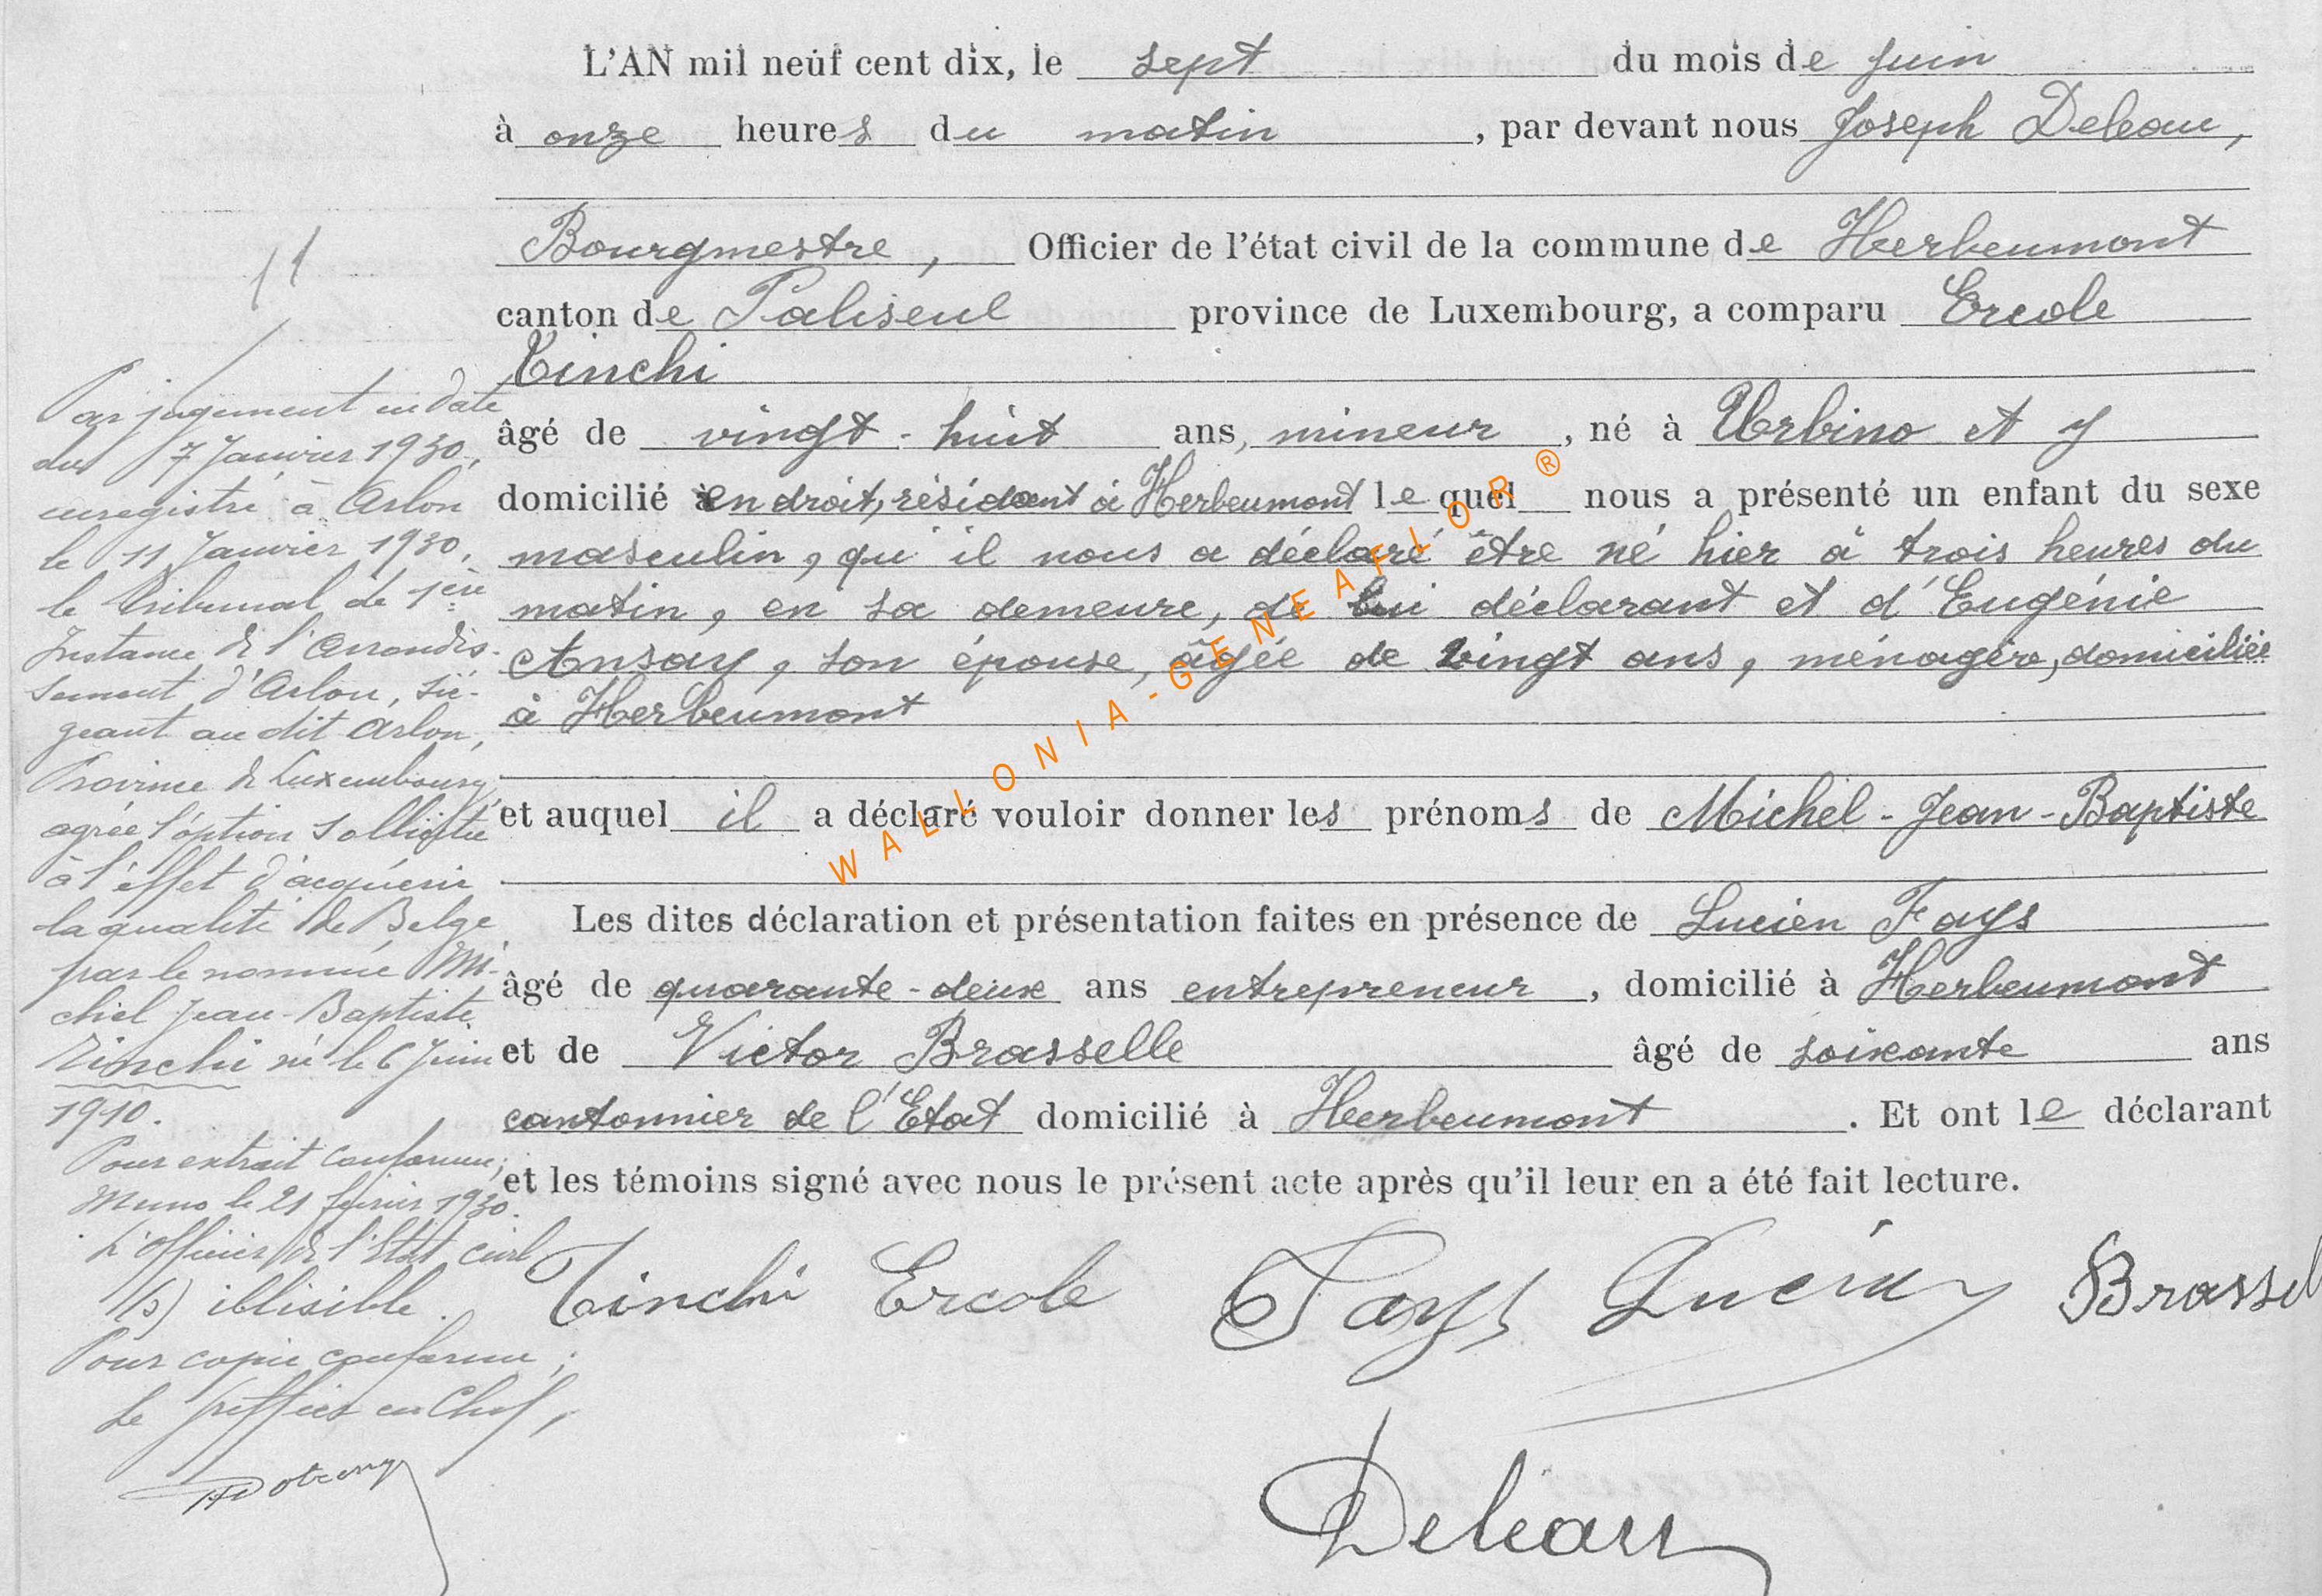 L'AN mil neuf cent dix, le sept du mois de juin
à onze heures du matin, par devant nous Joseph
Bourgmestre, Officier de l'état civil de la commune de Herbeumont
canton de Paliseul province de Luxembourg, a comparu Ercole
Tinchi
âgé de vingt-huit ans, mineur, né à Urbino et y
domicilié en droit, résidant à Herbeumont lequel nous a présenté un enfant du sexe
masculin, qu'il nous a déclaré être né hier à trois heures du
matin, en sa demeure, de lui déclarant et d'Eugénie
Ansay, son épouse, âgée de vingt ans, ménagère, domiciliée
à Herbeumont
et auquel il a déclaré vouloir donner les prénoms de Michel-Jean-Baptiste
Les dites déclaration et présentation faites en présence de Lucien Fays
âgé de quarante-deux ans entrepreneur, domicilié à Herbeumont
et de Victor Brasselle âgé de soixante ans
cantonnier de l'Etat domicilié à Herbeumont. Et ont le déclarant
et les témoins signé avec nous le présent acte après qu'il leur en a été fait lecture.
Tinchi Ercole Fays Lucien Brassel
11
Par jugement en date
du 7 Janvier 1930,
enregistré à Arlon
le 11 Janvier 1930,
le Tribunal de 1ère
Instance de l'Arrondis-
sement d'Arlon, sié-
geant au dit Arlon,
Province de Luxembourg,
agrée l'option sollicitée
à l'effet d'acquérir
la qualité de Belge
par le nommé Mi-
chel Jean-Baptiste
Tinchi né le 6 Juin
1910.
Pour extrait conforme;
Muno le 21 février 1930.
L'officier de l'Etat civil
(s) illisible.
Pour copie conforme;
Le Greffier en Chef,
WALLONIA-GENEAFLOR ®